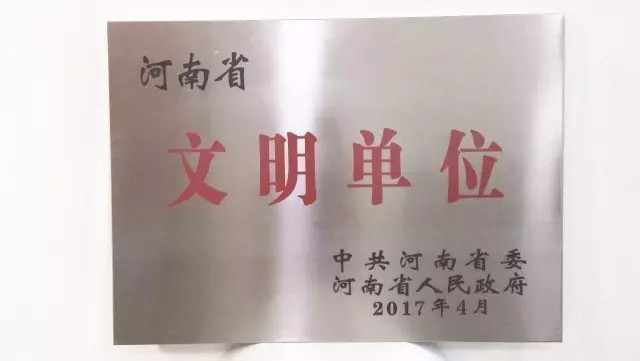 河南省
文明单位
中共河南省委
河南省人民政府
2017年4月